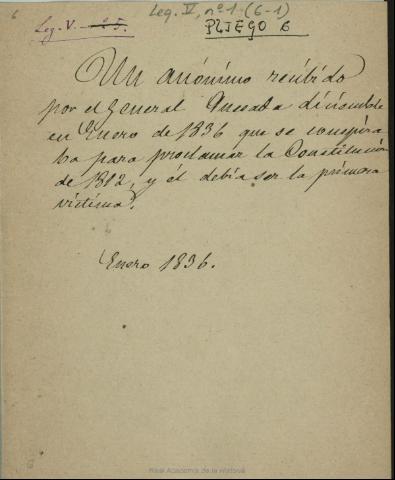 6
Leg. V, nº 1 (6-1)
Leg. V. - 25.
PLIEGO 6
Un anónimo recibido
por el General Quesada diciendole
en Enero de 1836 que se conspira
ba para proclamar la Constitución
de 1812, y él debía ser la primera
víctima.
Enero 1836.
Real Academia de la Historia